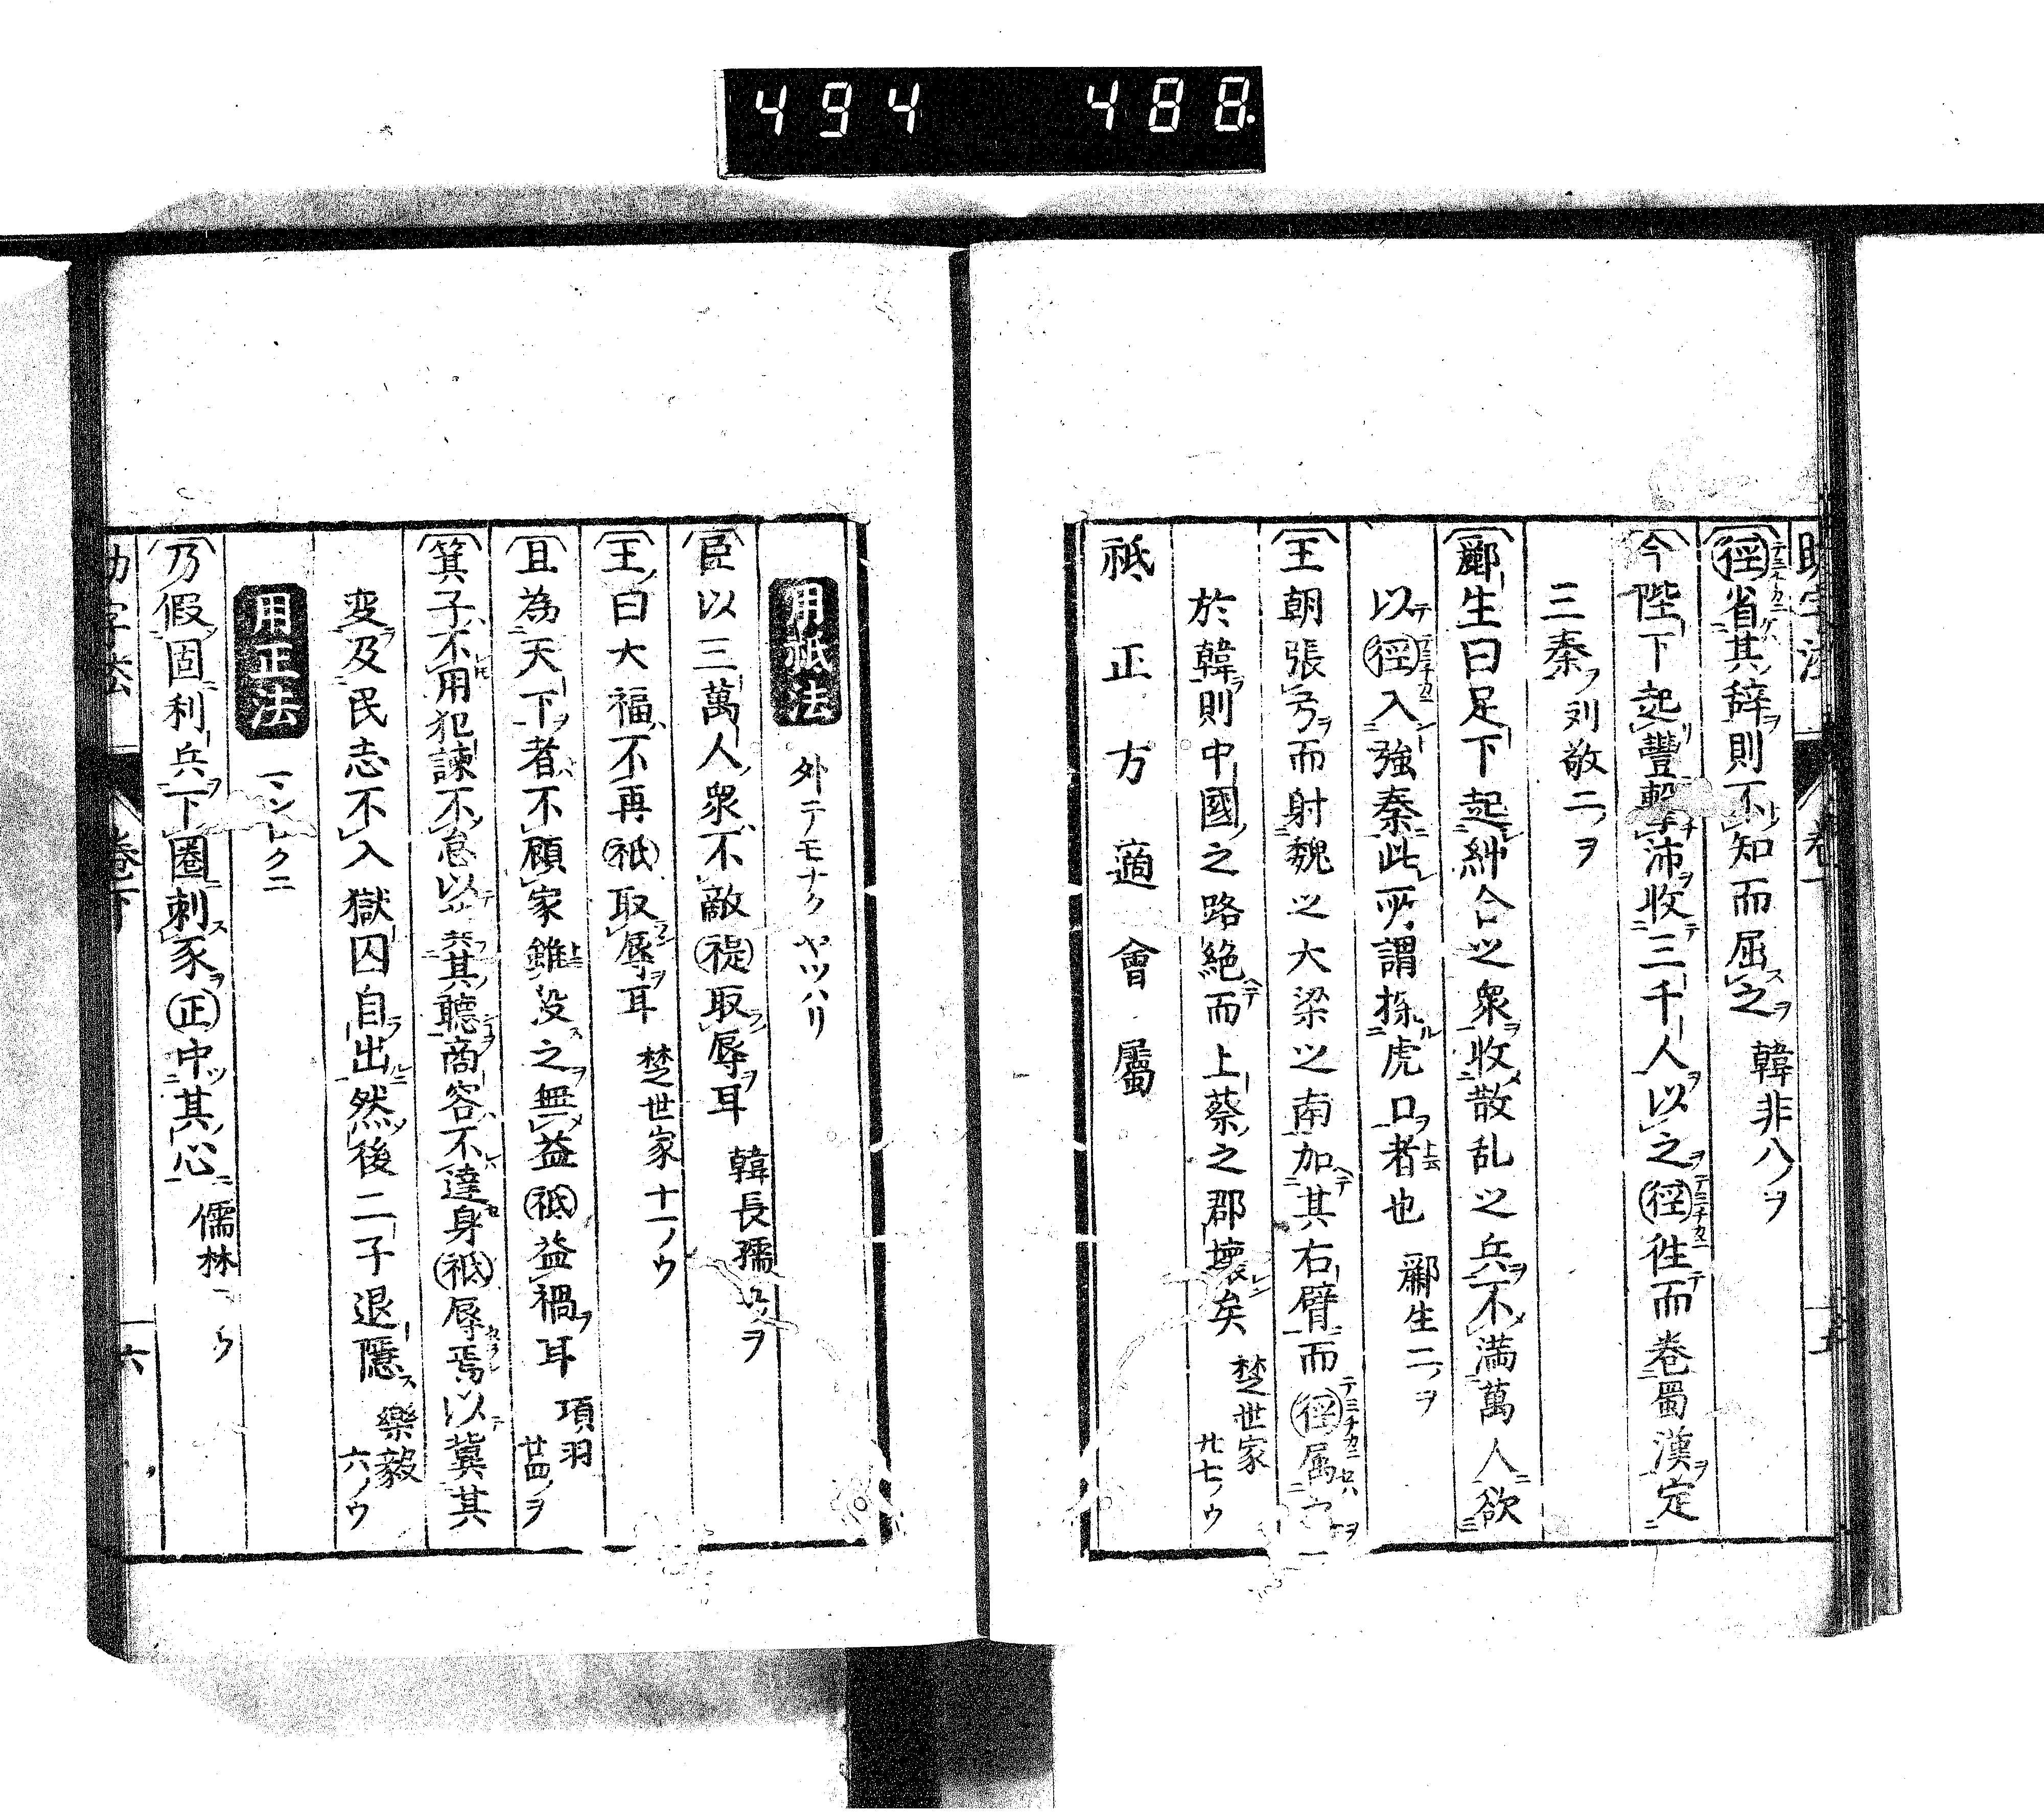 494 488.
徑省其辞則不知而屈之 韓非八ノヲ
今陛下起豐擊沛收三千人以之徑徃而卷蜀漢定
三秦 刘敬二ノヲ
酈生曰足下起糾合之衆收散乱之兵不満萬人欲
以徑入強秦此所謂探虎口者也 酈生二ノヲ
王朝張弓而射魏之大梁之南加其右臂而徑属
於韓則中國之路絶而上蔡之郡壊矣 楚世家 廿七ノウ
祗正方適會屬
用祗法 外テモナクヤツハリ
臣以三萬人衆不敵禔取辱耳 韓長孺 ヲ
王曰大福不再祗取辱耳 楚世家 十一ノウ
且為天下者不顧家雖殺之無益祗益禍耳 項羽 廿四ノヲ
箕子不用犯諫不怠以冀其聽商容不達身祗辱焉以冀其
変及民志不入獄囚自出然後二子退隱 樂毅 六ノウ
用正法 マンロクニ
乃假固利兵下圈刺豕正中其心 儒林 ウ
助字法 卷下 六